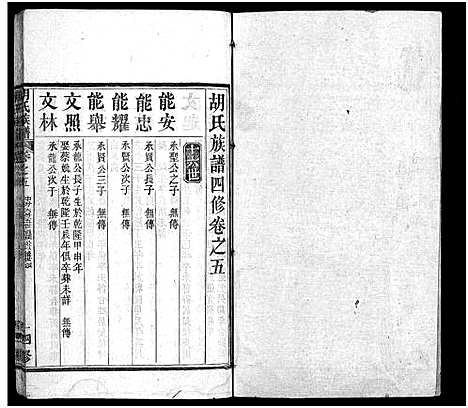 胡氏族譜四修卷之五
能安 承聖公之子 無傳
能忠 承賢公長子 無傳
能耀 承賢公次子 無傳
能舉 承賢公三子 無傳
文照 承龍公長子生於乾隆甲申年
娶蔡氏生於乾隆壬辰年俱卒葬未詳 無傳
文林 承龍公次子 無傳
胡氏族譜
四修